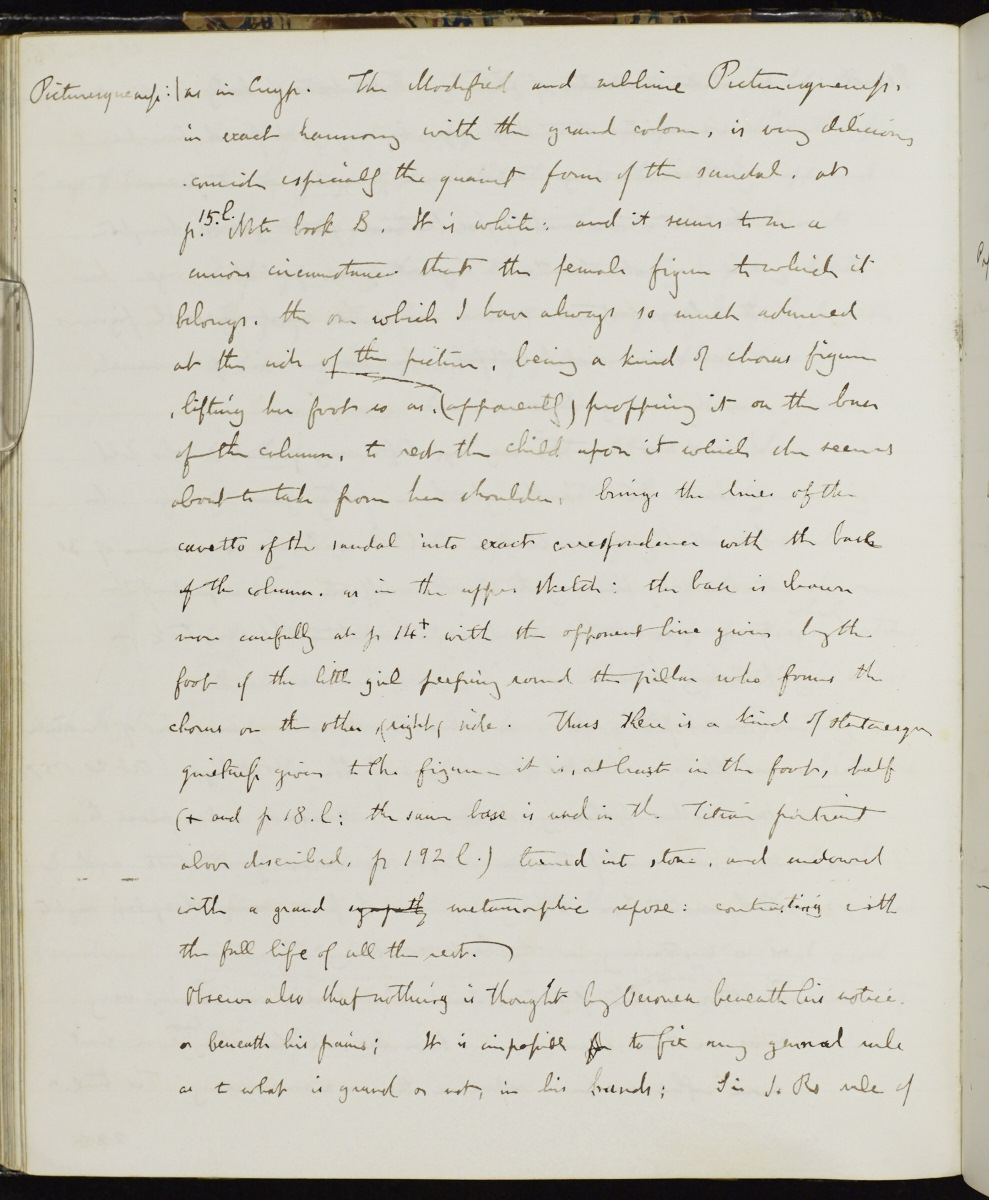 Picturesqueness: | as in Cuyp. The Modified and sublime Picturesqueness.
in exact harmony with the grand colour, is very delicious
consider especially the quaint form of the sandal. at
p. 15.l. Note book B. It is white: and it seems to me a
curious circumstance that the female figure to which it
belongs. the one which I have always so much admired
at the side of the picture, being a kind of chorus figure
, lifting her foot so as (apparently) propping it on the base
of the column, to rest the child upon it which she seems
about to take from her shoulder, brings the lines of the
cavetto of the sandal into exact correspondence with the base
of the column. as in the upper sketch: the base is drawn
more carefully at p 14+. with the opponent line given by the
foot of the little girl peeping round the pillar who forms the
chorus on the other (right) side. Thus there is a kind of statuesque
quietness given to the figure - it is, at least in the foot, half
(+ and p 18.l: the same base is used in the Titian portrait
above described, p 192 l.) turned into stone, and endowed
with a grand sympathy metamorphic repose: contrasting with
the full life of all the rest.
Observe also that nothing is thought by Veronese beneath his notice.
or beneath his pains; It is impossible to fix any general rule
as to what is grand or not, in his hands; Sir J. Rs rule of